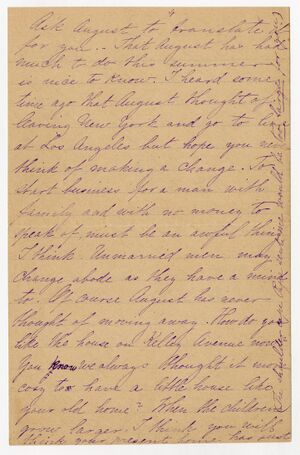 Ask August to "translate"
for you. . That August has had
much to do this summer
is nice to know. I heard some
time ago that August thought of
leaving New York and go to live
at Los Angeles but hope you never
think of making a change. To
start business for a man with
family and with no money to
speak of must be an awful thing
I think Unmarried men may
Change abode as they have a mind
to. Of course August has never
thought of moving away. How do you
like the house on Kelley Avenue now
You know we always thought it more
cosy to have a little house like
your old home? When the children
grow larger I think you will
think your present home has just